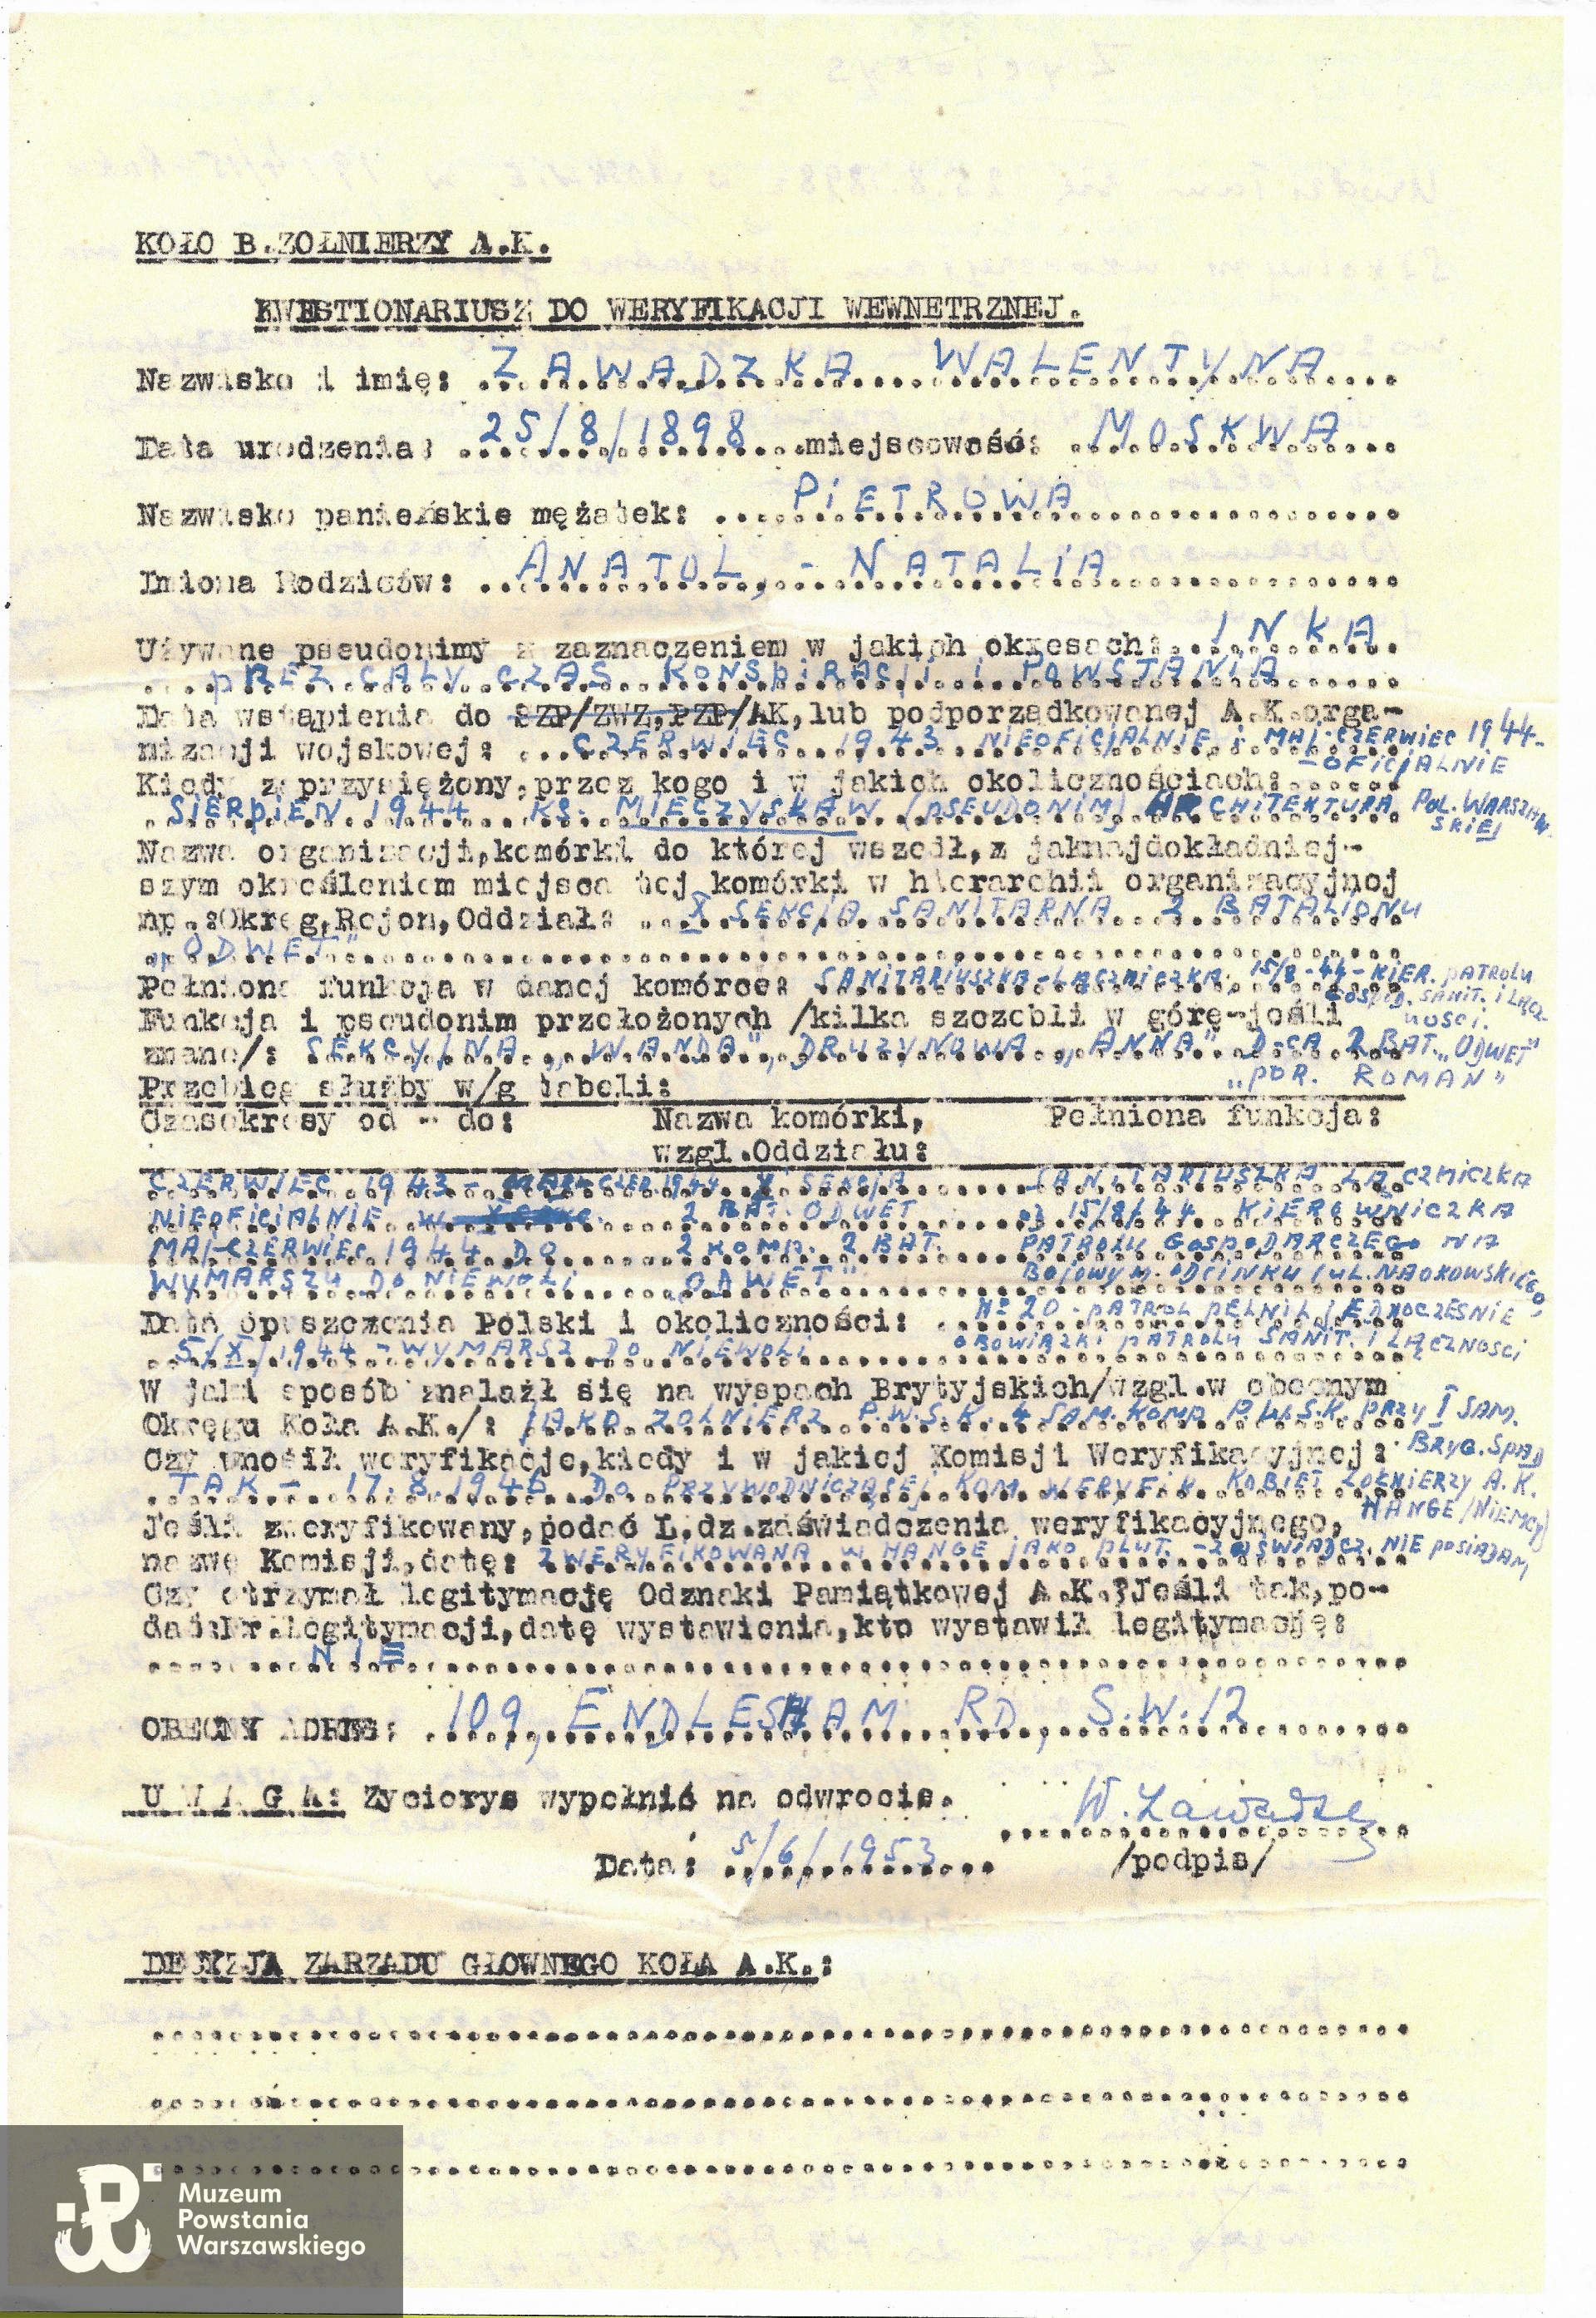 KOŁO B.ZOŁNIERZY A.K.
KWESTIONARIUSZ DO WERYFIKACJI WEWNETRZNEJ.
Nazwisko i imię: ZAWADZKA WALENTYNA
Data urodzenia: 25/8/1898 miejscowość: MOSKWA
Nazwisko panieńskie mężatek: PIETROWA
Imiona Rodziców: ANATOL, - NATALIA
Używane pseudonimy z zaznaczeniem w jakich okresach: INKA
pRZEZ CAŁY CZAS KONSPIRACJI i POWSTANIA
Data wstąpienia do SZP/ZWZ,PZP/AK,lub podporządkowanej A.K.orga-
nizacji wojskowej: CZERWIEC 1943 NIEOFICJALNIE i MAJ-CZERWIEC 1944-
-OFICJALNIE
Kiedy zaprzysiężony,przez kogo i w jakich okolicznościach:
SIERPIEŃ 1944 KS. MIECZYSŁAW (PSEUDONIM) ARCHITEKTURA POL. WARSZAW-
SKIEJ
Nazwa organizacji,komórki do której wszedł,z jaknajdokładniej-
szym określeniem miejsca tej komórki w hierarchii organizacyjnej
np.:Okreg,Rejon,Oddział: X SEKCJA SANITARNA 2 BATALIONU
"ODWET"
Pełniona funkcja w danej komórce: SANITARIUSZKA-ŁĄCZNICZKA, 15/8-44-KIER. PATROLU
GOSPOD. SANIT. i ŁĄCZ-
NOŚCI.
Funkcja i pseudonim przełożonych /kilka szczebli w górę-jeśli
znane/: SEKCYJNA "WANDA", DRUŻYNOWA "ANNA" D-CA 2 BAT. "ODWET"
"POR. ROMAN"
Przebieg służby w/g tabeli:
Czasokresy od - do: Nazwa komórki, Pełniona funkcja:
wzgl.Oddziału:
CZERWIEC 1943 - CZER 1944 X SEKCJA SANITARIUSZKA ŁĄCZNICZKA
NIEOFICJALNIE 2 BAT. ODWET 15/8/44 KIEROWNICZKA
MAJ-CZERWIEC 1944 DO 2 KOMP. 2 BAT. PATROLU GOSPODARCZEGO NA
WYMARSZU DO NIEWOLI "ODWET" BOJOWYM ODCINKU /UL. NABOKOWSKIEGO
Nº 20 - PATROL PEŁNIŁ JEDNOCZEŚNIE
Data opuszczenia Polski i okoliczności:
OBOWIĄZKI PATROLU SANIT. I ŁĄCZNOŚCI
5/X/1944 - WYMARSZ DO NIEWOLI
W jaki sposób znalazł się na wyspach Brytyjskich/wzgl.w obecnym
Okręgu Koła A.K./: JAKO ŻOŁNIERZ P.W.S.K. 4 SAM. KOMP P.W.S.K. PRZY I SAM.
BRYG. SPAD
Czy wnosił weryfikację,kiedy i w jakiej Komisji Weryfikacyjnej:
TAK - 17.8.1946 DO PRZYWODNICZĄCEJ KOM. WERYFIK. KOBIET ŻOŁNIERZY A.K.
HANGE/NIEMCY/
Jeśli zweryfikowany,podać L.dz.zaświadczenia weryfikacyjnego,
nazwę Komisji,datę: ZWERYFIKOWANA W HANGE JAKO PLUT. - ZAŚWIADCZ. NIE POSIADAM
Czy otrzymał legitymację Odznaki Pamiątkowej A.K.?Jeśli tak,po-
dać Nr.legitymacji,datę wystawienia,kto wystawił legitymację:
NIE
OBECNY ADRES: 109, ENDLESHAM RD, S.W.12
U W A G A: Zyciorys wypełnić na odwrocie.
W. Zawadzka
Data: 5/6/1953 /podpis/
DECYZJA ZARZADU GŁOWNEGO KOŁA A.K.:
Muzeum
Powstania
Warszawskiego